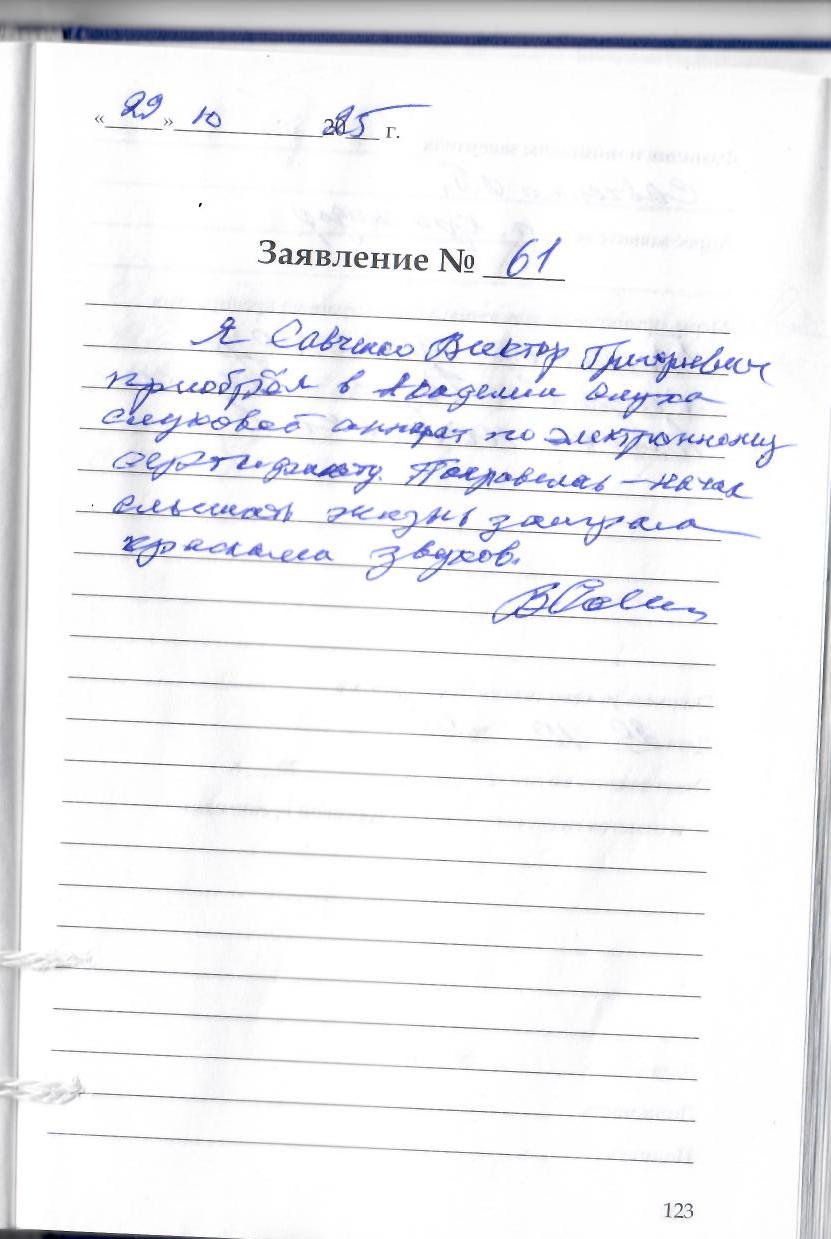 «29» 10 2025 г.
Заявление № 61
Я Савченко Виктор Григорьевич
приобрёл в Академии слуха
слуховой аппарат по электронному
сертификату. Понравилось – начал
слышать жизнь заиграла
красками звуков.
123